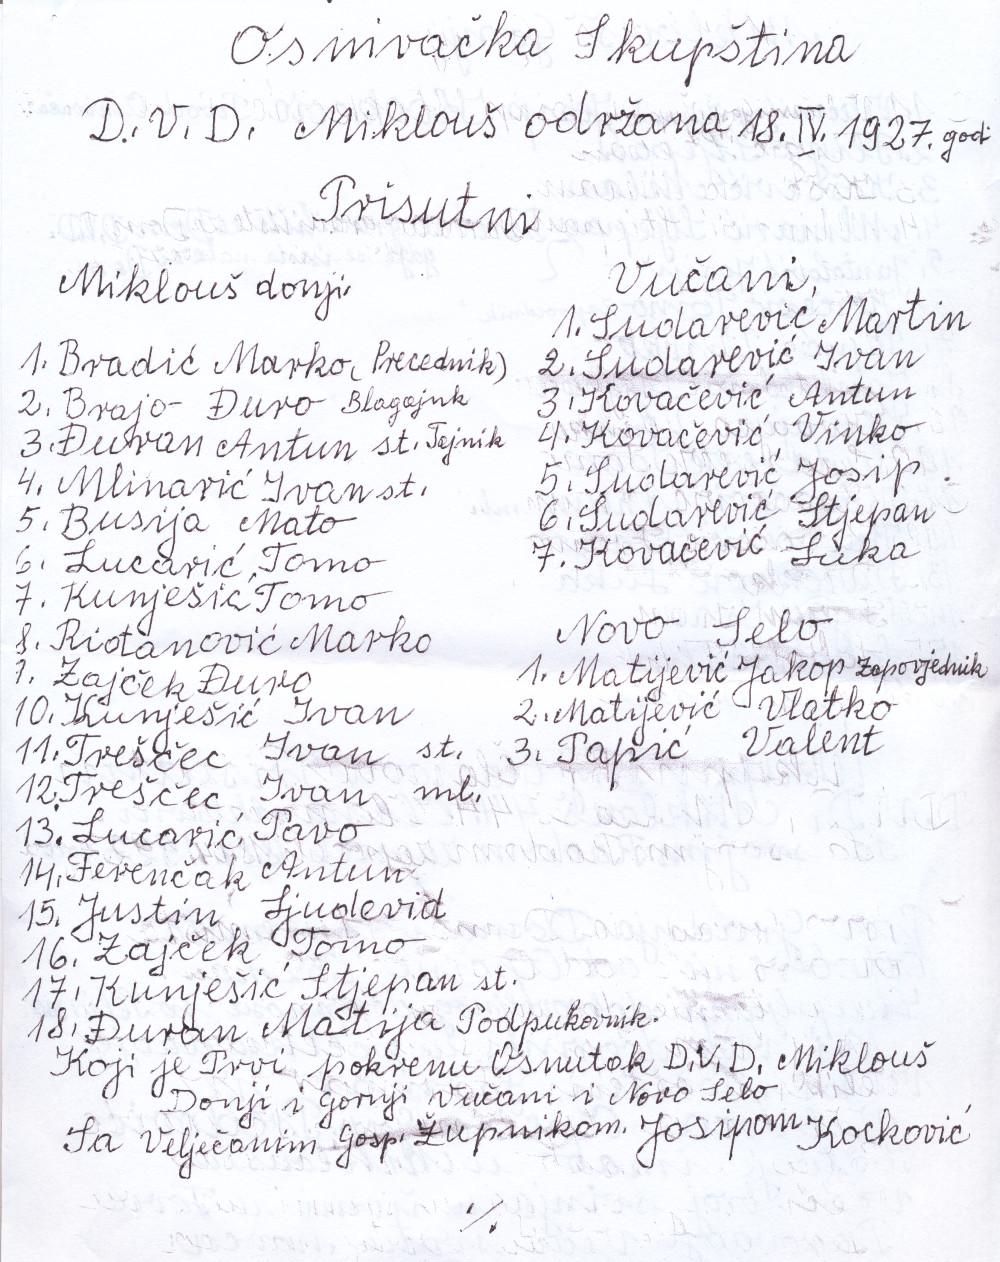 Osnivačka Skupština
D.V.D. Miklouš održana 18. IV. 1927. god
Prisutni
Miklouš donji
1. Bradić Marko (Precednik)
2. Brajo- Đuro Blagajnk
3. Đuran Antun st. Tajnik
4. Mlinarić Ivan st.
5. Busija Mato
6. Lucarić Tomo
7. Kunješić Tomo
8. Riđanović Marko
9. Zajček Đuro
10. Kunješić Ivan
11. Treščec Ivan st.
12. Treščec Ivan ml.
13. Lucarić Pavo
14. Ferenčak Antun
15. Justin Ljudevid
16. Zajček Tomo
17. Kunješić Stjepan st.
18. Đuran Matija Podpukovnik.
Vučani,
1. Sudarević Martin
2. Sudarević Ivan
3. Kovačević Antun
4. Kovačević Vinko
5. Sudarević Josip.
6. Sudarević Stjepan
7. Kovačević Luka
Novo Selo
1. Matijević Jakop Zapovjednik
2. Matijević Vlatko
3. Papić Valent
Koji je Prvi pokrenu Osnutak D.V.D. Miklouš
Donji i Gornji Vučani i Novo Selo
Sa Veljecanim Gosp. Župnikom. Josipom Kočković